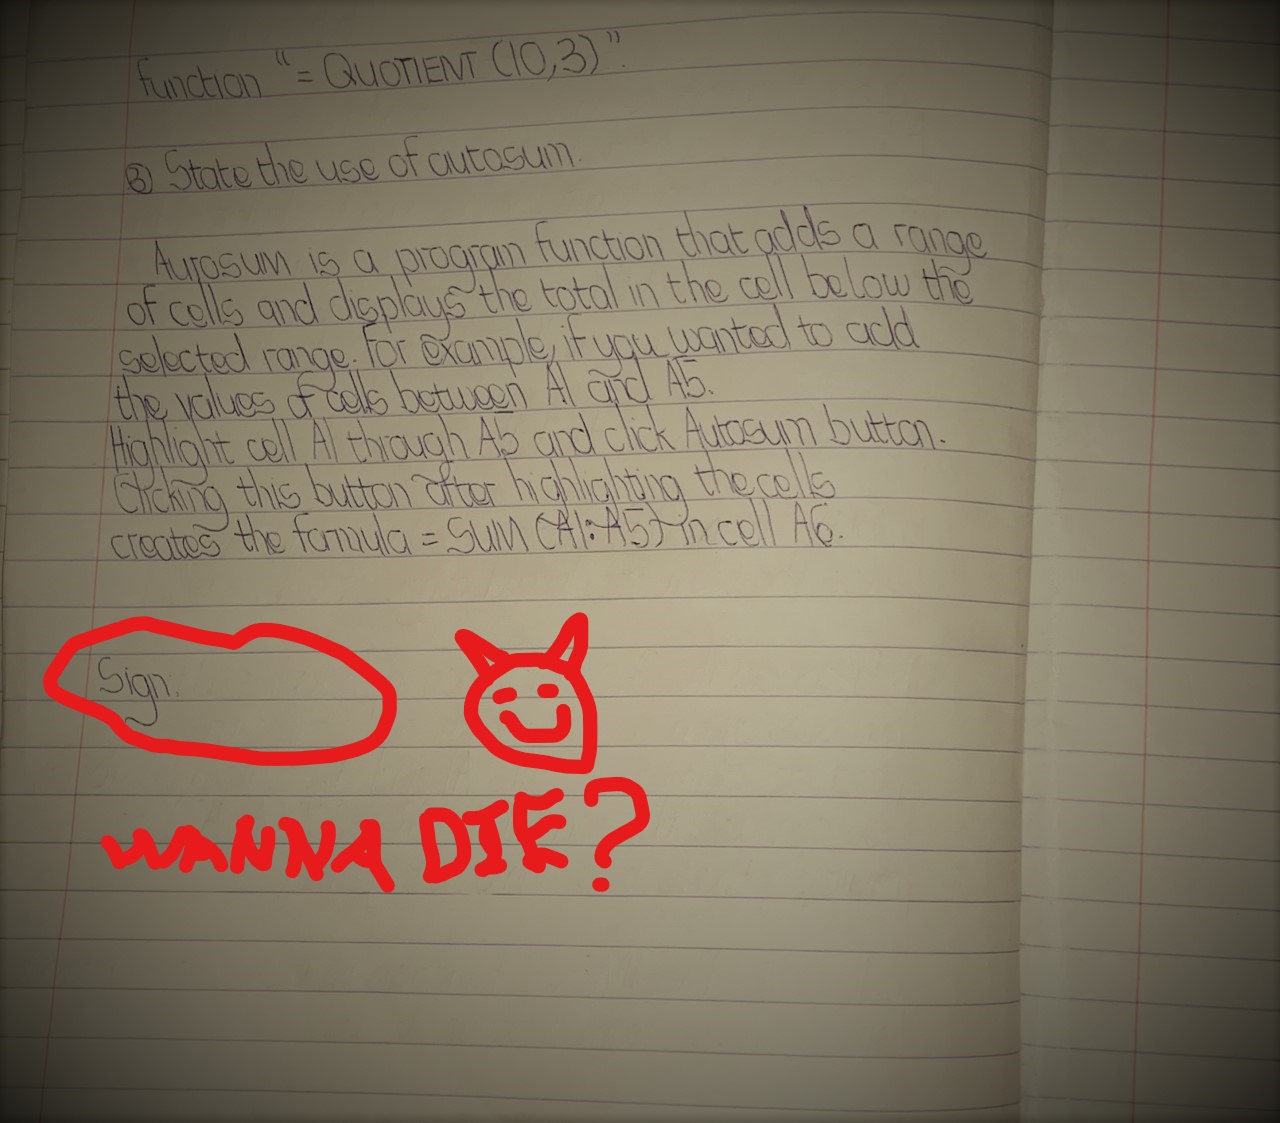 function "= QUOTIENT (10,3)".
③ State the use of autosum.
Autosum is a program function that adds a range
of cells and displays the total in the cell below the
selected range. For example, if you wanted to add
the values of cells between A1 and A5.
Highlight cell A1 through A5 and click Autosum button.
Clicking this button after highlighting the cells
creates the formula = SUM (A1:A5) in cell A6.
Sign.
WANNA DIE?